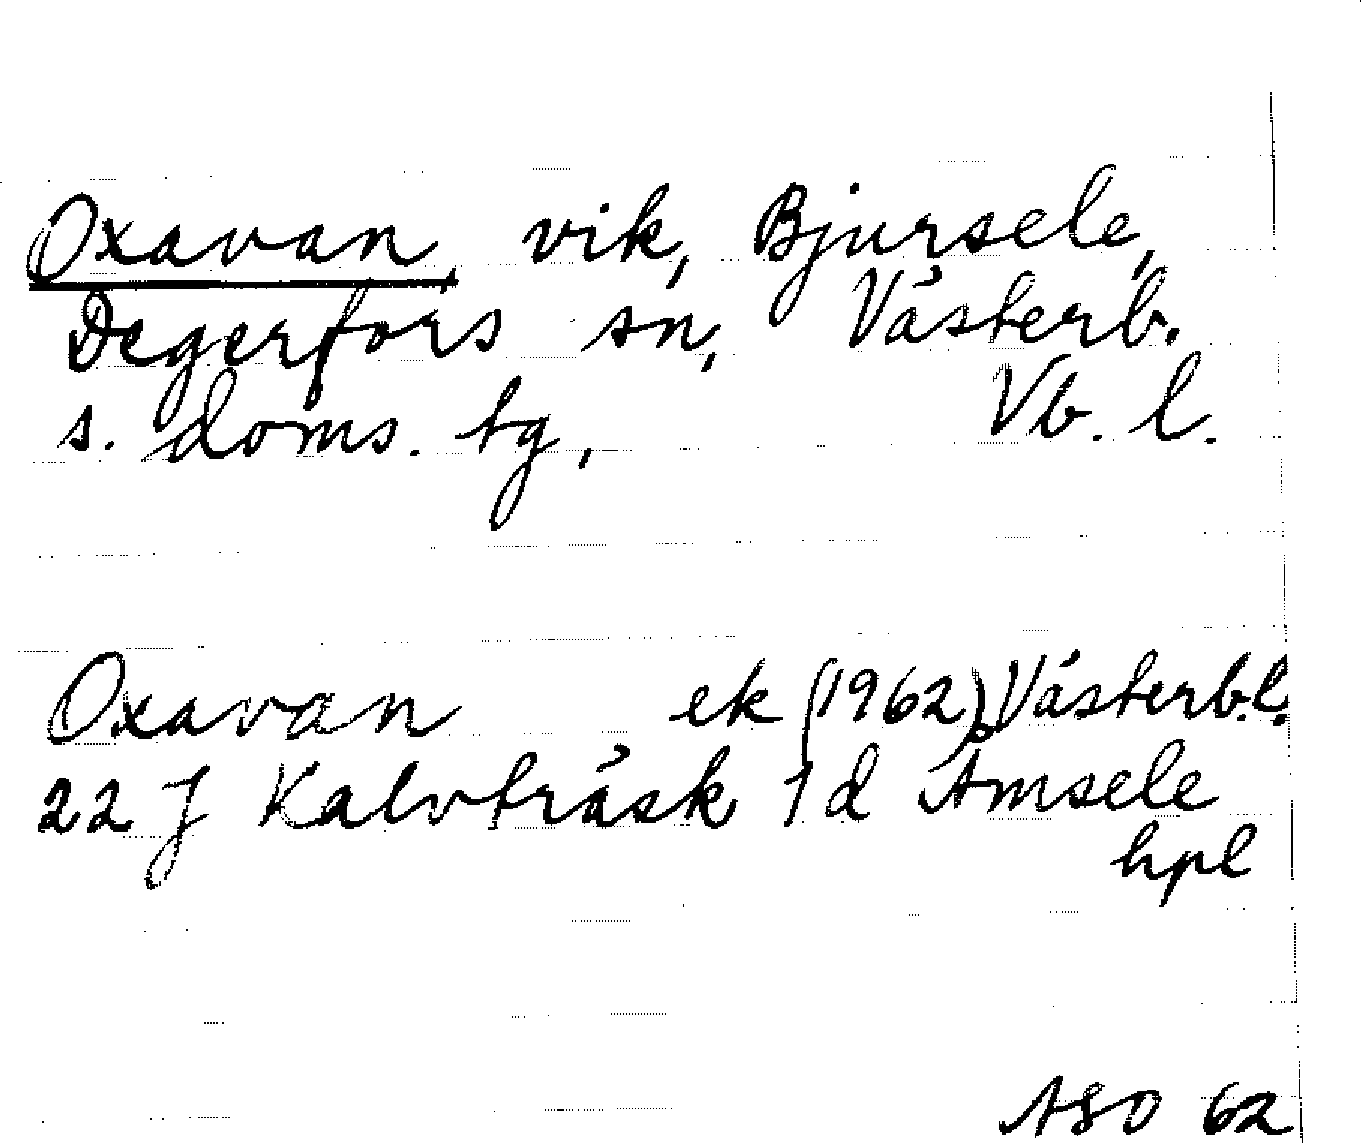 Oxavan, vik, Bjursele,
Degerfors sn, Västerb.
s. doms. tg, Vb. l.
Oxavan ek (1962) Västerb.l.
22 J Kalvträsk 1 d Åmsele
hpl
ASO 62